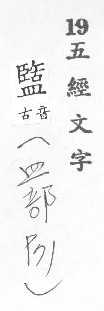 19五經文字
盬音古（皿部）